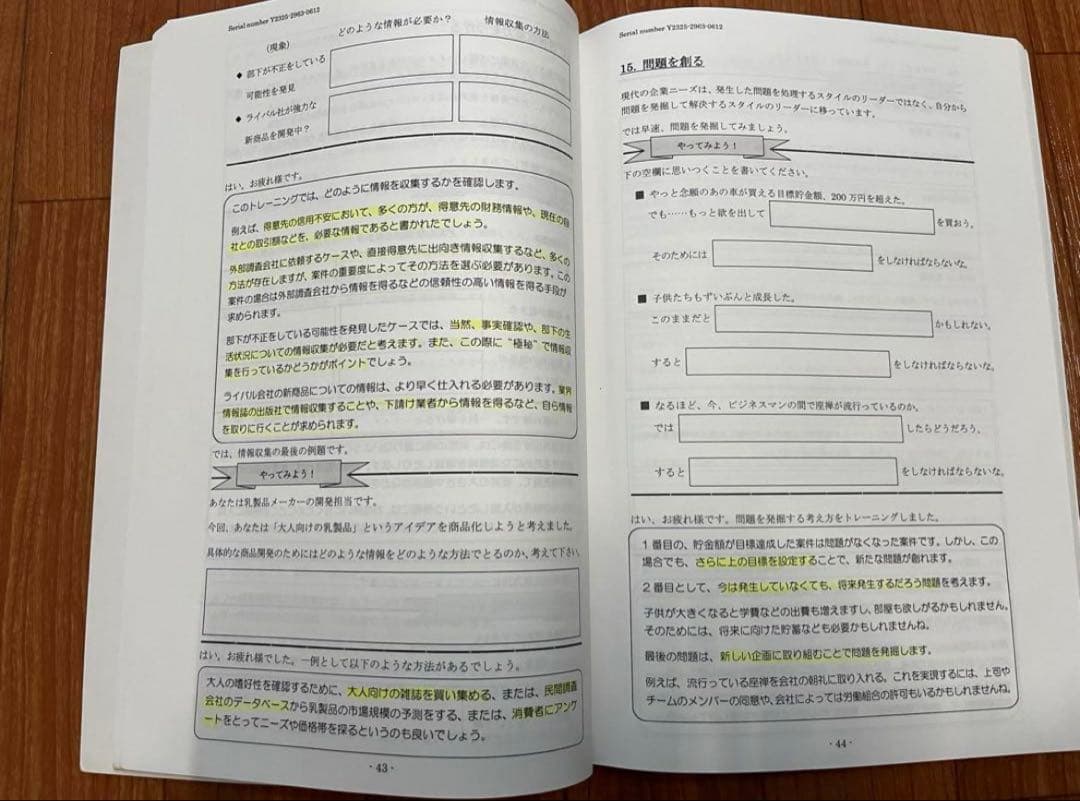 Serial number Y2325-2963-0612
どのような情報が必要か？ 情報収集の方法
（現象）
◆ 部下が不正をしている
可能性を発見
◆ ライバル社が強力な
新商品を開発中？
はい、お疲れ様です。
このトレーニングでは、どのように情報を収集するかを確認します。
例えば、得意先の信用不安において、多くの方が、得意先の財務情報や、現在の自
社との取引額などを、必要な情報であると書かれたでしょう。
外部調査会社に依頼するケースや、直接得意先に出向き情報収集するなど、多くの
方法が存在しますが、案件の重要度によってその方法を選ぶ必要があります。この
案件の場合は外部調査会社から情報を得るなどの信頼性の高い情報を得る手段が
求められます。
部下が不正をしている可能性を発見したケースでは、当然、事実確認や、部下の生
活状況についての情報収集が必要だと考えます。また、この際に“極秘”で情報収
集を行っているかどうかがポイントでしょう。
ライバル会社の新商品についての情報は、より早く仕入れる必要があります。業界
情報誌の出版社で情報収集することや、下請け業者から情報を得るなど、自ら情報
を取りに行くことが求められます。
では、情報収集の最後の例題です。
やってみよう！
あなたは乳製品メーカーの開発担当です。
今回、あなたは「大人向けの乳製品」というアイデアを商品化しようと考えました。
具体的な商品開発のためにはどのような情報をどのような方法でとるのか、考えて下さい。
はい、お疲れ様でした。一例として以下のような方法があるでしょう。
大人の嗜好性を確認するために、大人向けの雑誌を買い集める、または、民間調査
会社のデータベースから乳製品の市場規模の予測をする、または、消費者にアンケ
ートをとってニーズや価格帯を探るというのも良いでしょう。
- 43 -
Serial number Y2325-2963-0612
15. 問題を創る
現代の企業ニーズは、発生した問題を処理するスタイルのリーダーではなく、自分から
問題を発掘して解決するスタイルのリーダーに移っています。
では早速、問題を発掘してみましょう。
やってみよう！
下の空欄に思いつくことを書いてください。
■ やっと念願のあの車が買える目標貯金額、200万円を超えた。
でも……もっと欲を出して を買おう。
そのためには をしなければならないな。
■ 子供たちもずいぶんと成長した。
このままだと かもしれない。
すると をしなければならないな。
■ なるほど、今、ビジネスマンの間で座禅が流行っているのか。
では したらどうだろう。
すると をしなければならないな。
はい、お疲れ様です。問題を発掘する考え方をトレーニングしました。
1番目の、貯金額が目標達成した案件は問題がなくなった案件です。しかし、この
場合でも、さらに上の目標を設定することで、新たな問題が創れます。
2番目として、今は発生していなくても、将来発生するだろう問題を考えます。
子供が大きくなると学費などの出費も増えますし、部屋も欲しがるかもしれません。
そのためには、将来に向けた貯蓄なども必要かもしれませんね。
最後の問題は、新しい企画に取り組むことで問題を発掘します。
例えば、流行っている座禅を会社の朝礼に取り入れる。これを実現するには、上司や
チームのメンバーの同意や、会社によっては労働組合の許可もいるかもしれませんね。
- 44 -